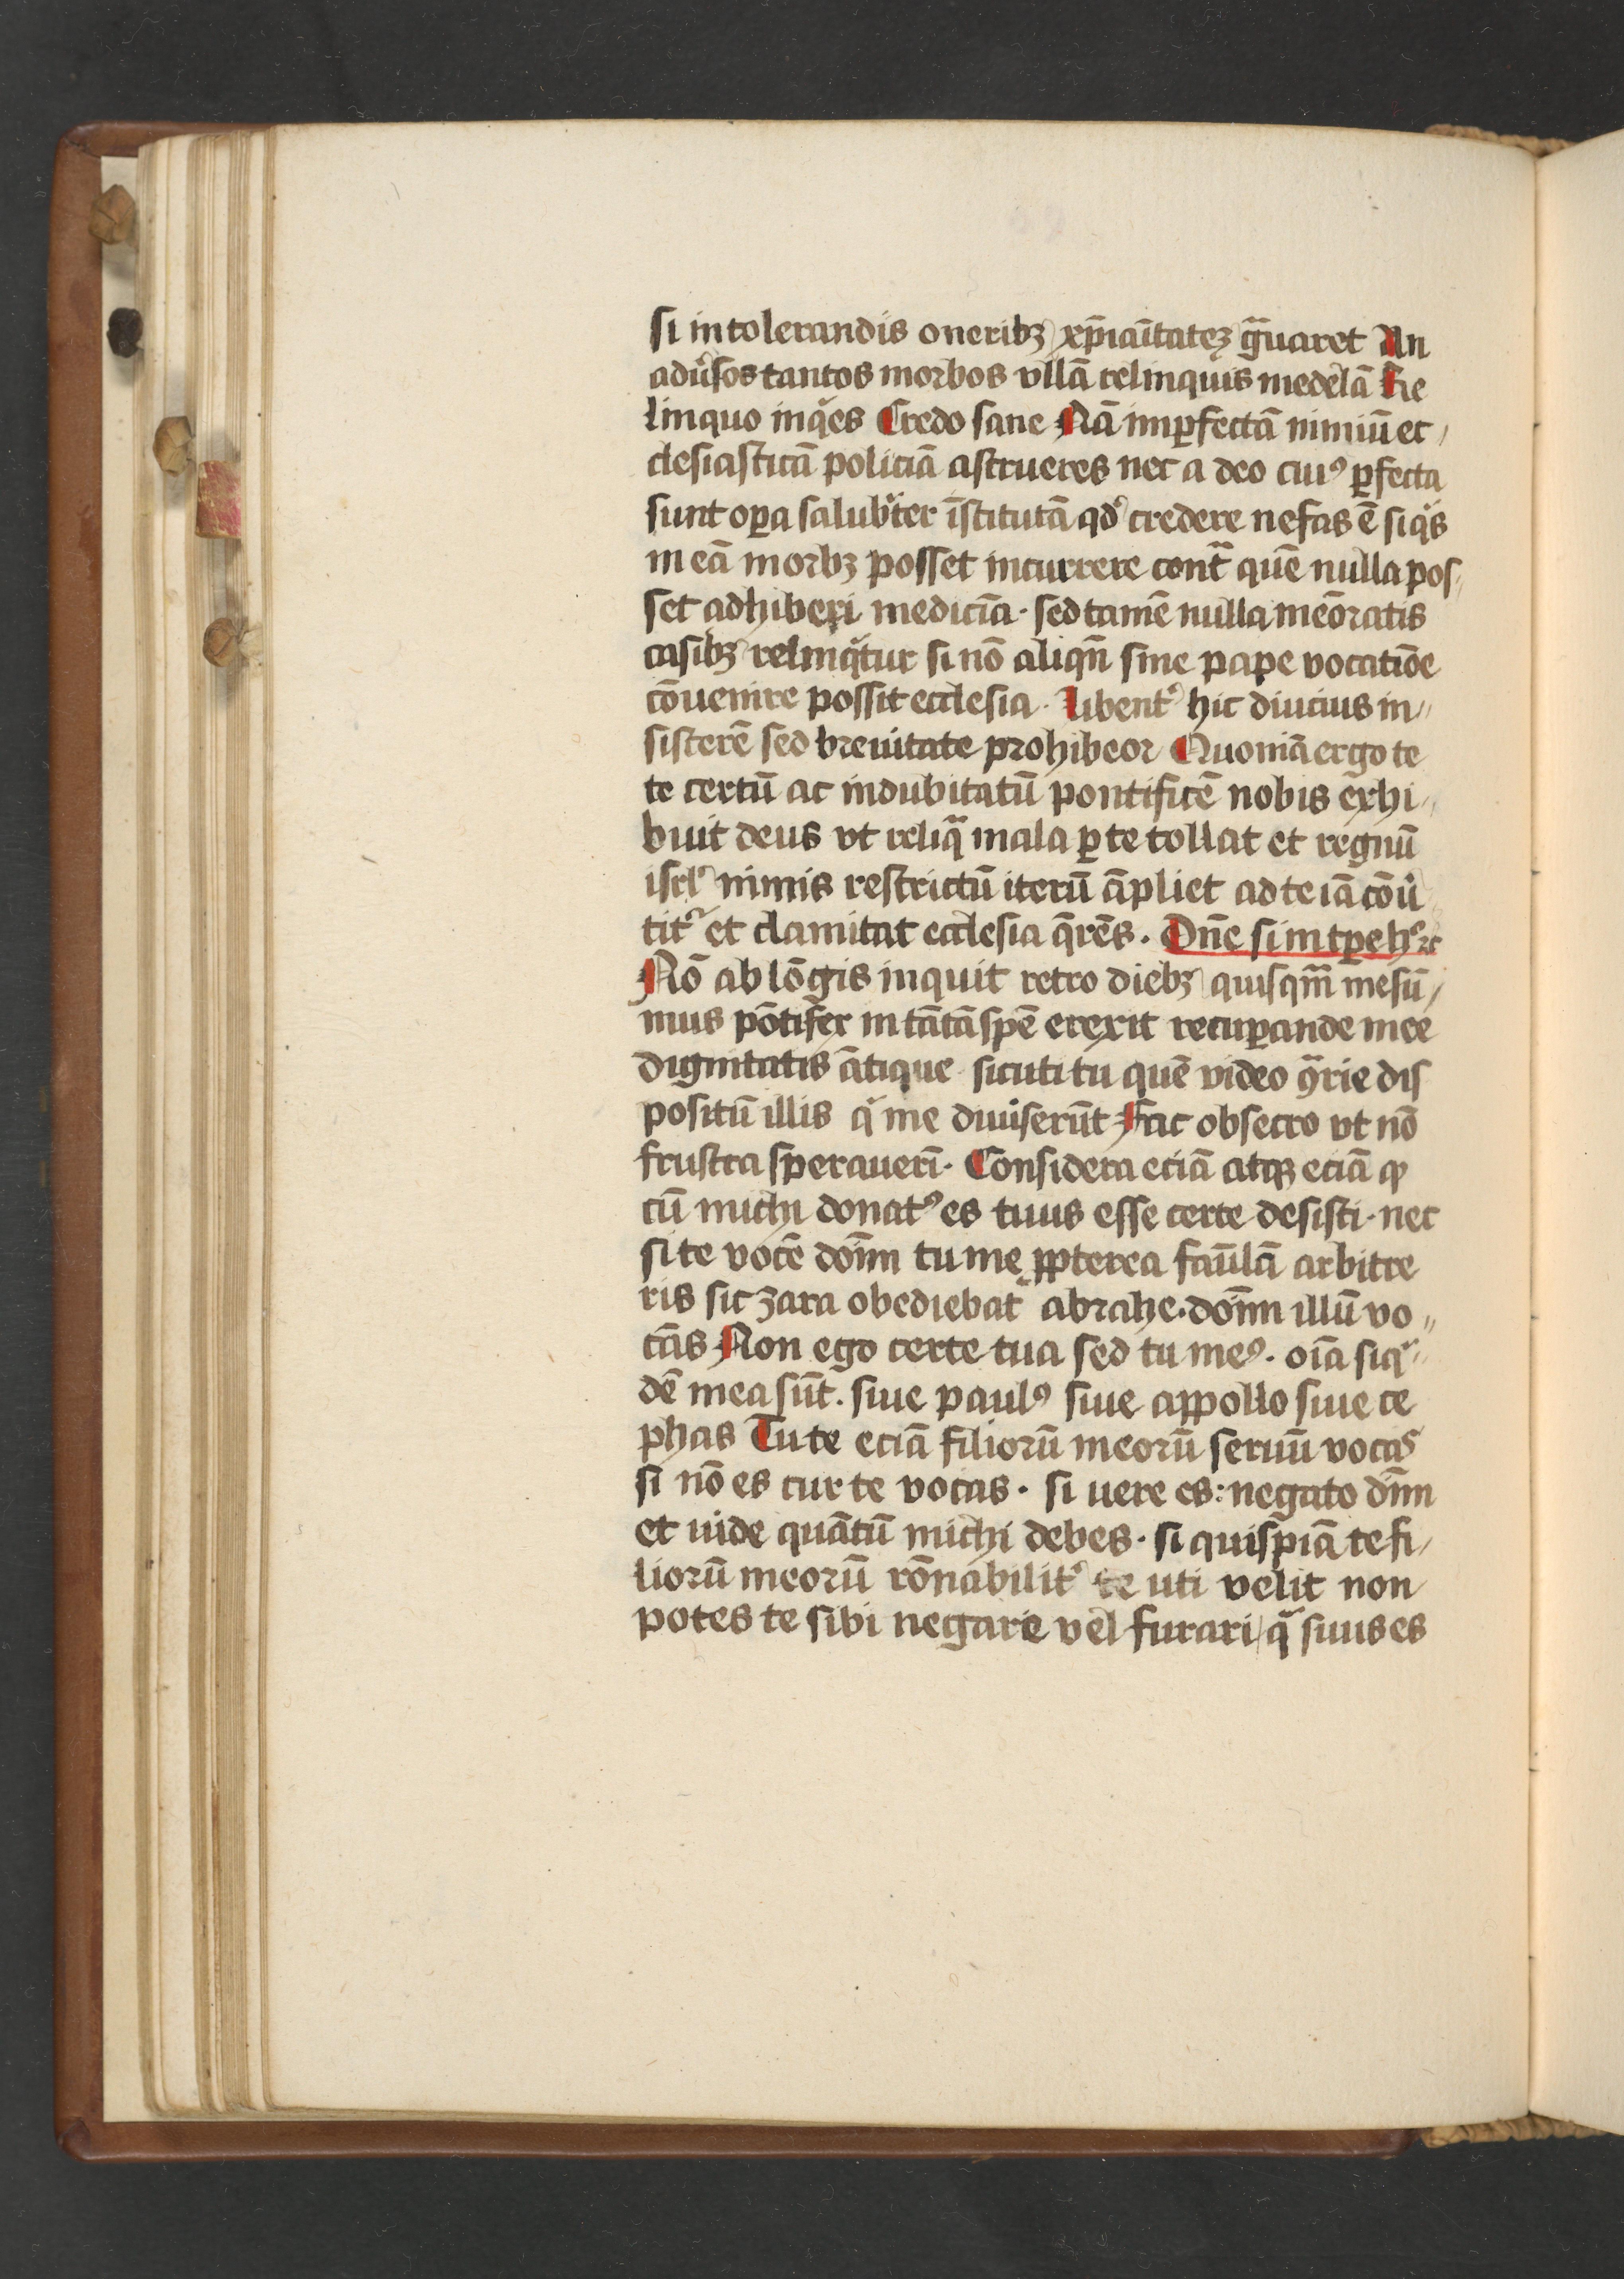 si intolerandis oneribꝫ xp̄iaītateꝫ g̃uaret An
adûsos tantos morbos vllā relinquis medelā Re
linquo inq̃es Credo sane Nā imꝑfectā nimiū ec
clesiasticā policiā astrueres nec a deo cuiꝰ ꝑfecta
sunt oꝑa salubr̓ter īstitutā qd̓ credere nefas ē si q̓s
in eā morbꝫ posset incurrere cont̃ quē nulla pos
set adhiberi mediciā · sed tamē nulla mēoratis
casibꝫ relinq̓tur si nō aliqn̄ sine pape vocatiōe
cōuenire possit ecclesia · Libent̓ hic diucius in
sisterē sed breuitate prohibeor Quoniā ergo te
te certū ac indubitatū pontificē nobis exhi
buit deus vt reliq̃ mala ꝑ te tollat et regnū
isrl̓ nimis restrictū iterū āpliet ad te iā cōû
tit᷑ et clamitat ecclesia q̄rēs · Dn̄e si in tꝑe h̓ ⁊c
Nō ab lōgis inquit retro diebꝫ quisqm̄ me sū
mus pōtifex in tātā spē erexit recuꝑande mee
dignitatis ātique sicuti tu quē video q̃rie dis
positū illis q̓ me diuiserūt Fac obsecro vt nō
frustra sperauerī · Considera eciā atqꝫ eciā ꝙ
cū michi donatꝰ es tuus esse certe desisti · nec
si te vocē dōīm tu me ꝓpterea faūlā arbitre
ris sic zara obediebat abrahe · dōīm illū vo
cās Non ego certe tua sed tu meꝰ · oīa siq̓
dē mea sūt · siue paulꝰ siue appollo siue ce
phas Tu te eciā filiorū meorū seruū vocas
si nō es cur te vocas · si uere es : negato dn̄m
et uide quātū michi debes · si quispiā te fi
liorū meorū rōnabilit̓ te uti velit non
potes te sibi negare vel furari q̃ suus es